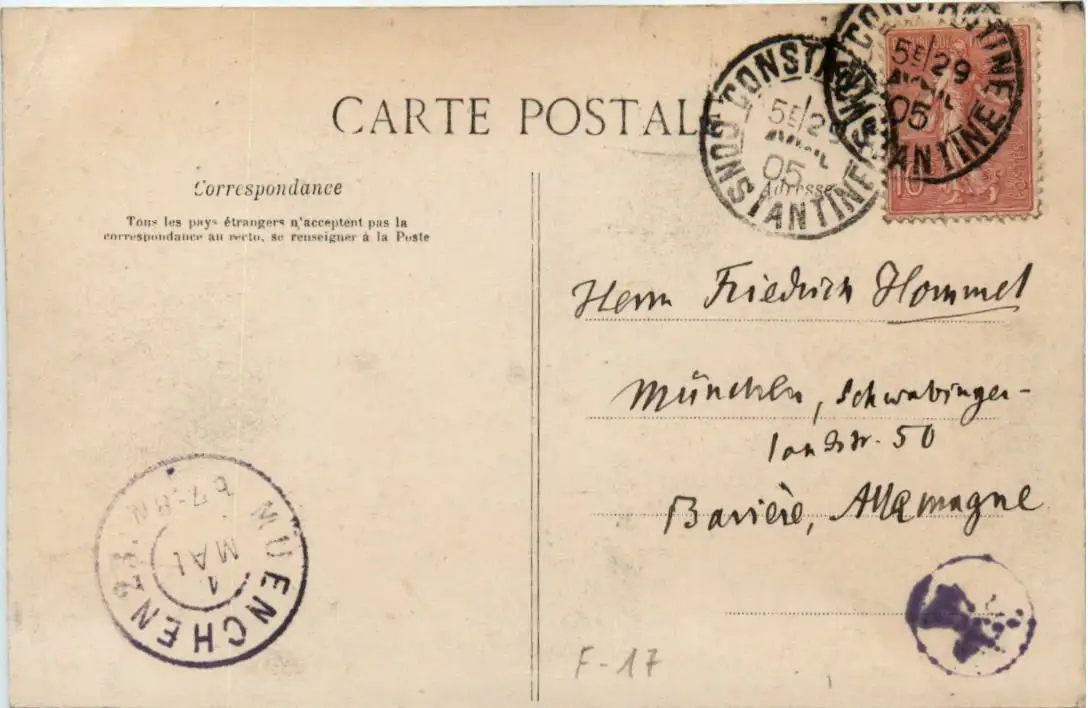 CARTE POSTALE
CONSTANTINE CONSTANTINE
5E/29
AVRIL
05
CONSTANTINE CONSTANTINE
5E/29
AVRIL
05
10
Correspondance
Tous les pays étrangers n'acceptent pas la
correspondance au recto, se renseigner à la Poste
Adresse
Herrn Friedrich Hommel
München, Schwabinger-
landstr. 50
Bavière, Allemagne
MUENCHEN 23.
1
MAI
7-8 N
F-17